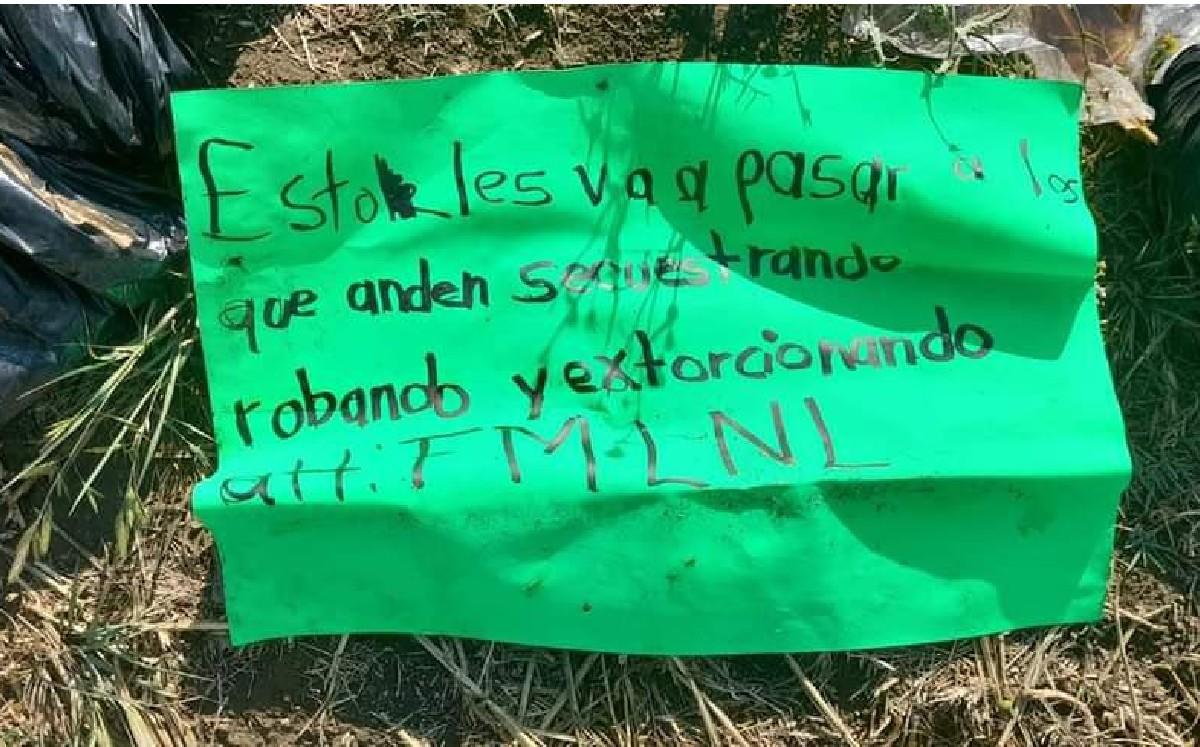 Esto les va a pasar a los
que anden secuestrando
robando y extorcionando
att. FMLNL